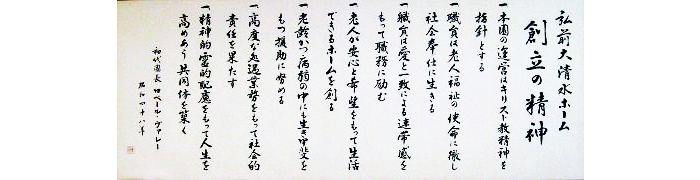 弘前大清水ホーム
創立の精神
一、本園の運営はキリスト教精神を
指針とする
一、職員は老人福祉の使命に徹し
社会奉仕に生きる
一、職員は愛と一致による連帯感を
もって職務に励む
一、老人が安心と希望をもって生活
できるホームを創る
一、老齢かつ病弱の中にも生き甲斐を
もつ援助に努める
一、高度な処遇業務をもって社会的
責任を果たす
一、精神的霊的配慮をもって人生を
高めあう共同体を築く
初代園長 ロベール・ヴァレー
昭和四十八年